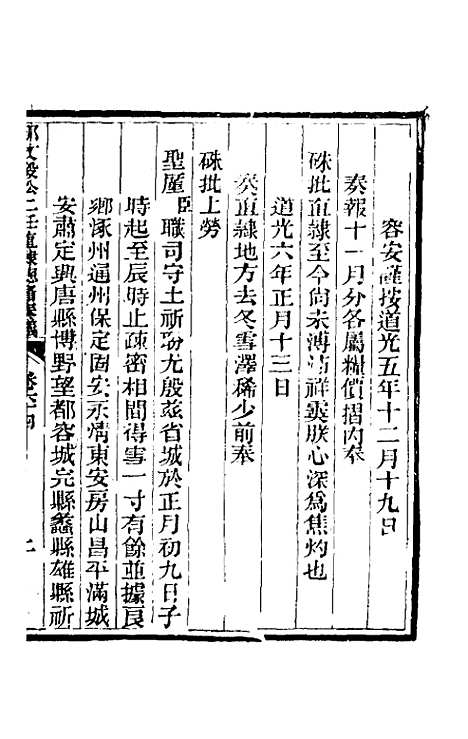 容安謹按道光五年十二月十九日
奏報十一月分各屬糧價摺內奉
硃批直隸至今尚未溥沾祥霙朕心深爲焦灼也
道光六年正月十三日
奏直隸地方去冬雪澤稀少前奉
硃批上勞
聖廑臣職司守土祈禱尤殷茲省城於正月初九日子
時起至辰時止疎密相間得雪一寸有餘並據良
鄉涿州通州保定固安永淸東安房山昌平滿城
安肅定興唐縣博野望都容城完縣蠡縣雄縣祈
那文毅公二任直隸總督奏議
卷六十四
二